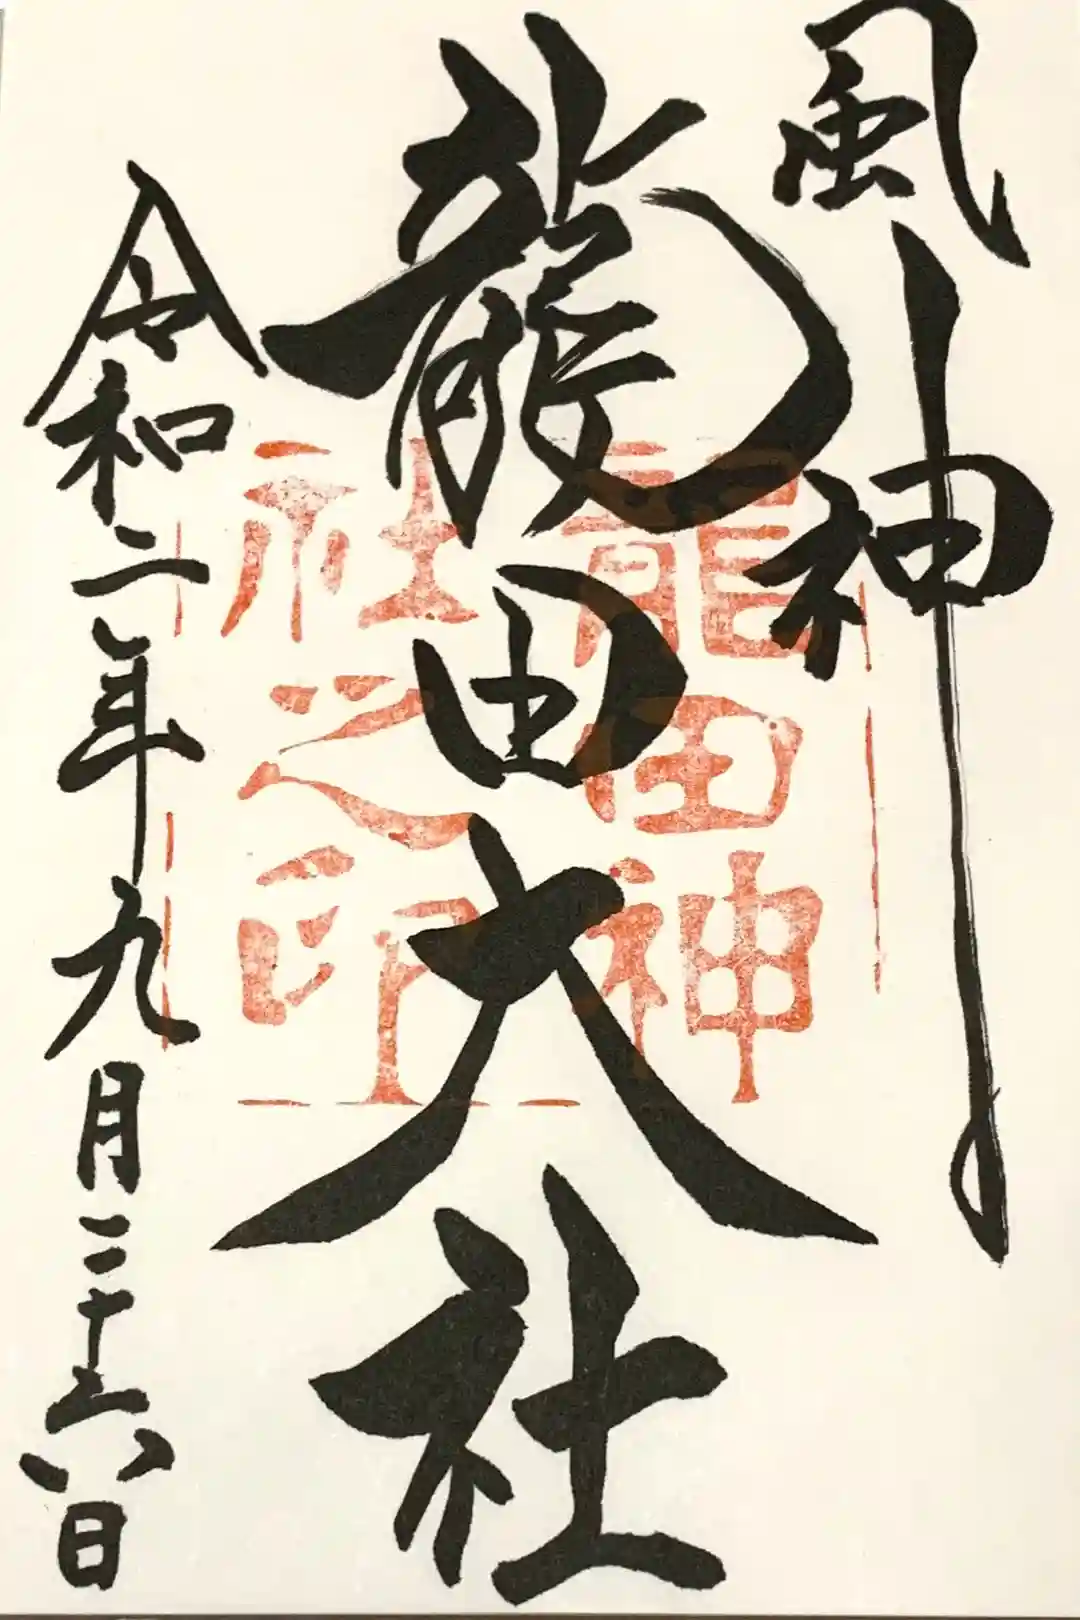 風神
龍田大社
龍田神
社之印
令和二年九月二十六日